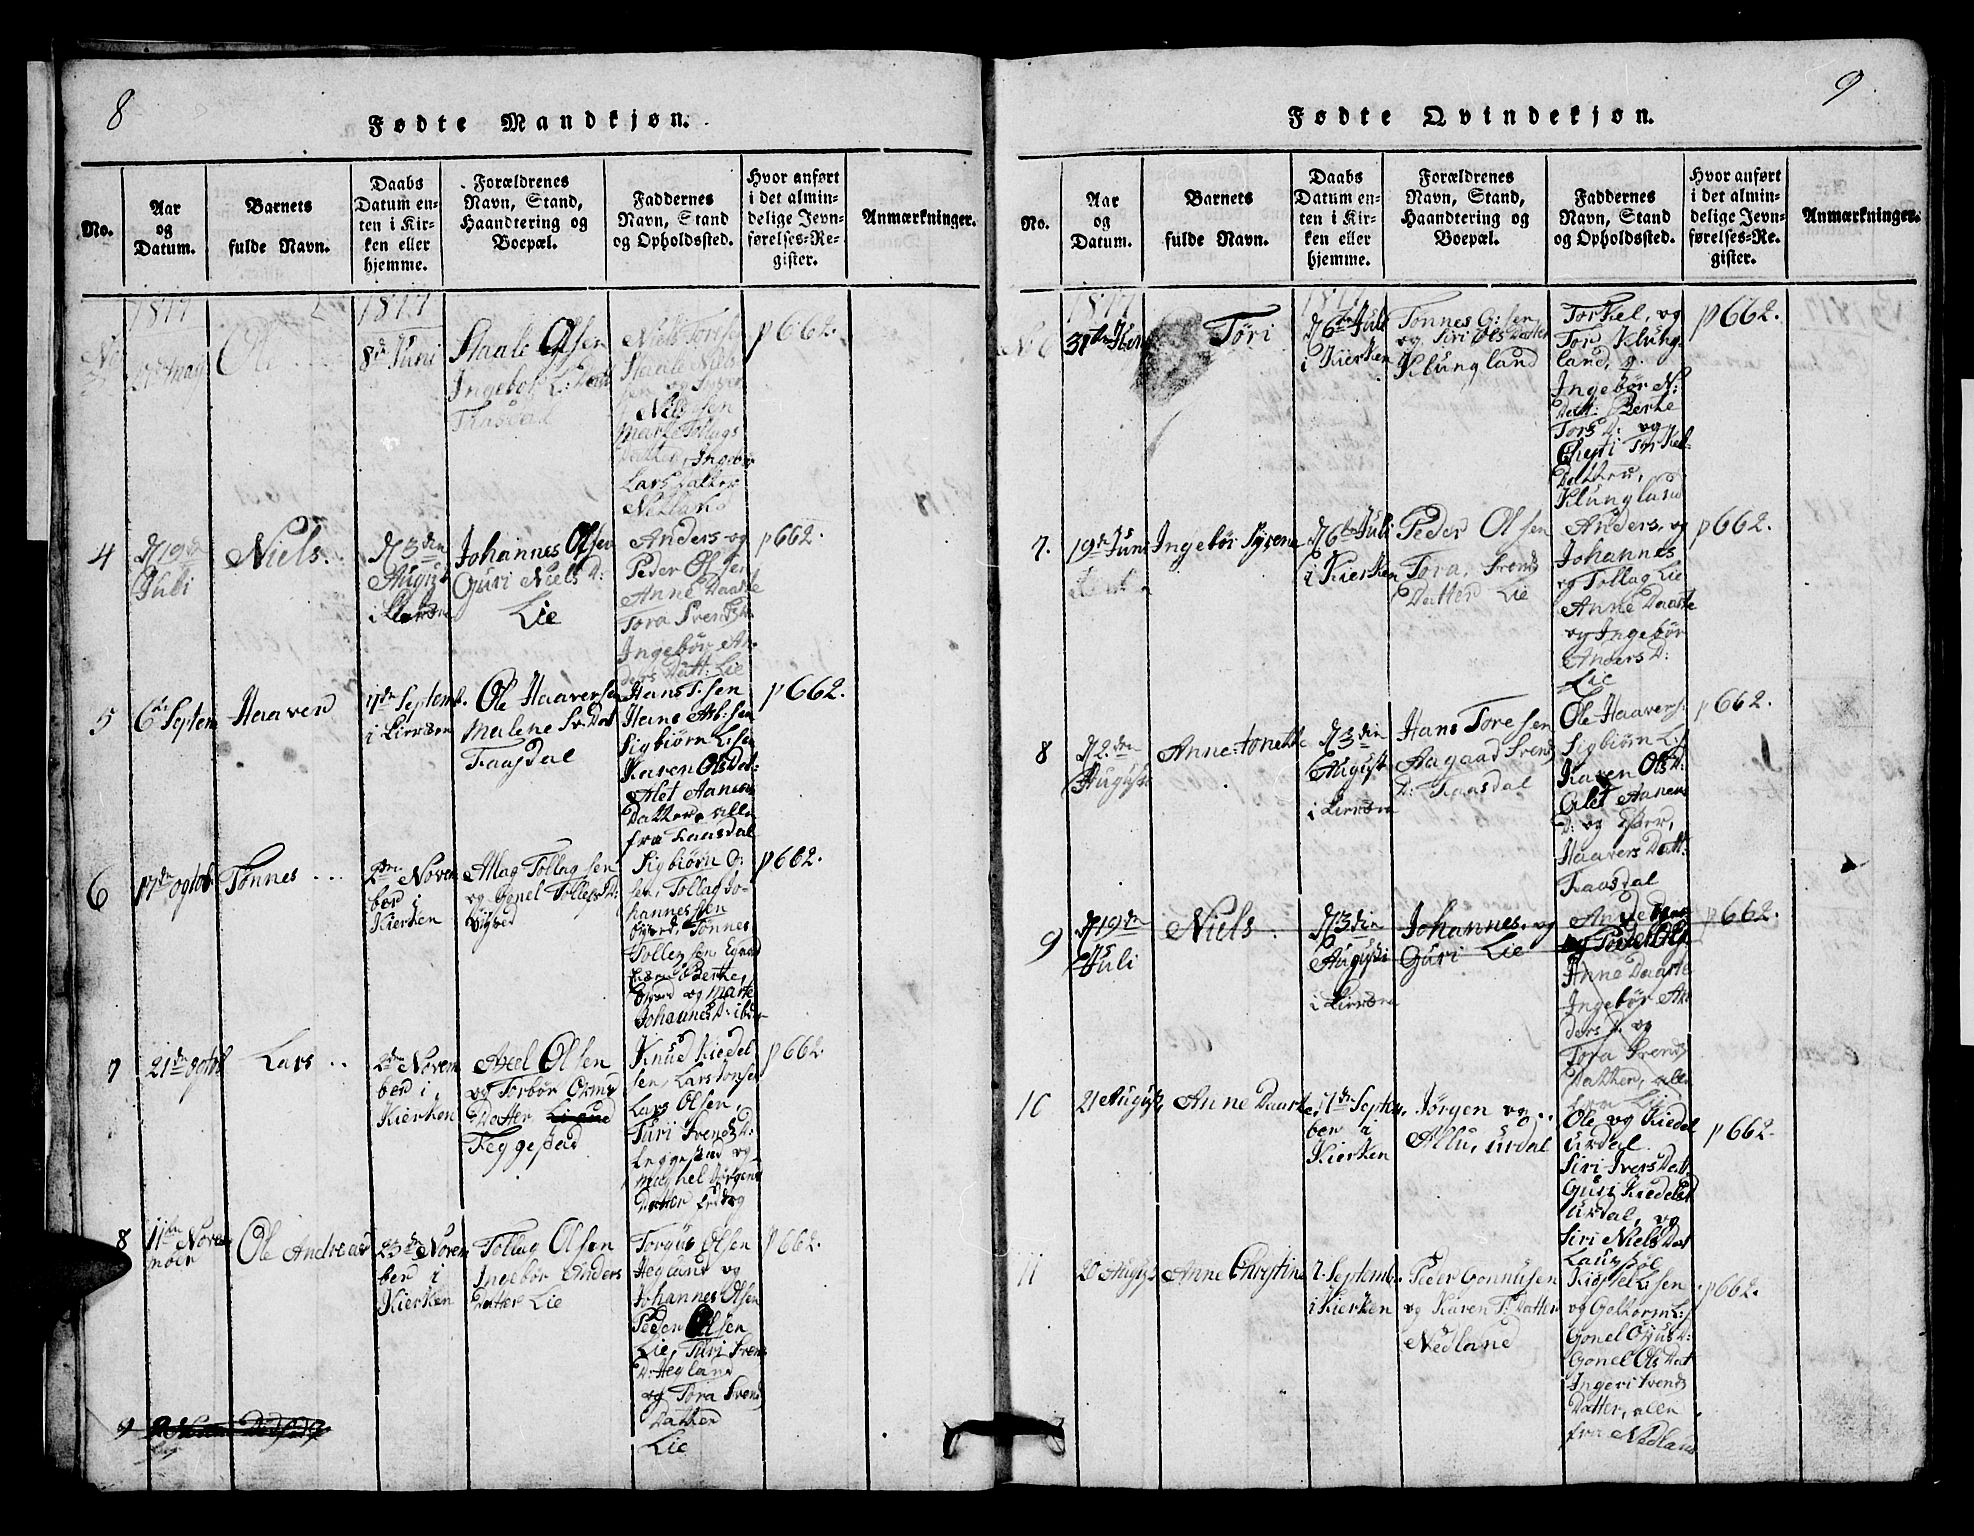 8
Fødte Mandkjøn.
No.
Aar
og
Datum.
Barnets
fulde Navn.
Daabs
Datum en-
ten i Kir-
ken eller
hjemme.
Forældrenes
Navn, Stand,
Haandtering og
Boepæl.
Faddernes
Navn, Stand
og Opholdssted.
Hvor anført
i det almin-
delige Jevn-
førelses-Re-
gister.
Anmærkninger.
1817
1817
Ole
8d Juni
Staale Olsen
Ingebor L: Datt
Niels Toresen
Staale Nils
sen og Siver
Nielssen
Marte Tollags
Datter, Ingebor
Lars Datter
Nedland
p 662.
4
d 19de
Juli
Niels.
d 3die
August
Johannes Olsen
Guri Niels D:
Lie
Anders og
Peder Olsen
Anne Daarte
Tora Svends
Ingebør An-
ders Datt: Lie
p 662.
5
6te Septem
Haaverd
7de Septemb.
Ole Haaversen
Malene Sv: Dat
Faasdal
Hans T:sen
Hans Ab:sen
Sigbiørn L:sen
Karen Ols Dat:
Alet Aanens
Datter, alle
fra Faasdal
p 662.
6
17de Ogtob
Tønnes
2den Novem
ber i
Kierken
Atlag Tollagsen
og Gonel Tollefs D:
Sigbiørn O:
sen, Tollag Jo-
hannessen
Tønnes
Tollefsen
Berthe
og Marte
Johannes D: ibd
p 662.
7
21de Ogtob
Lars
2den Novem
ber i
Kierken
Axel Olsen
og Torbør Orms
Datter
Feggestad
Knud Kiedel
sen, Lars Jonsen
Lars Olsen,
Turi Svends D:
Leggestad og
Maghel Jørgens
Datter
p 662.
8
11te Novem
Ole Andreas
23de Novem
ber i
Kierken
Tollag Olsen
Ingebør Anders
Datter Lie
Torgus Olsen
Hegland og
Johannes Olsen
Peder Olsen
Lie, Turi Svens
D: Hegland
og Tora Svends
Datter
Lie
p 662.
9
9
Fødte Qvindekjøn.
No.
Aar
og
Datum.
Barnets
fulde Navn.
Daabs
Datum en-
ten i Kir-
ken eller
hjemme.
Forældrenes
Navn, Stand,
Haandtering og
Boepæl.
Faddernes
Navn, Stand
og Opholdssted.
Hvor anført
i det almin-
delige Jevn-
førelses-Re-
gister.
Anmærkninger.
1817
1817
Tøri
d 6te Juli
i Kierken
Tønnes G:sen
og Siri Ols Datter
Klungland
Torkel, og
Tor Klung
land, og
Ingebør N:
Datt: Berte
Tors D: og
Cherti Torkel
Datter,
Klungland
p 662.
7.
19de Juni
Ingebør Syrena
d 6te Juli
i Kierken
Peder Olsen
Tora, Svends
Datter Lie
Anders, og
Johannes
og Tollag Lie
Anne Daarte
og Ingebør
Anders D:
Lie
p 662.
8
d 2den
August
Anne Tonette
d 3die
August
Hans Toresen
Aagaad Svends
D: Faasdal
Ole Haavers:
Sigbiørn L:s
Karen Ols D:
Alet Aanens
D: og
Haavers Datt:
Faasdal
p 662.
9
d 19de
Juli
Niels.
d 3die
August
Johannes, og
Guri Lie
Anders
og Peder Ols
Anne Daarte
Ingebør An
ders D: og
Tora Svends
Datter, alle
fra Lie
p 662.
10
21 August
Anne Daarte
7de Septem
ber i
Kierken
Jørgen og
Allu, Urdal
Ole og Kiedel
Urdal
Siri Ivers Dat
Guri Kiedels D
Urdal, og
Siri Niels Dat
p 662.
11
20 August
Anne Christine
7. Septemb.
i Kierken
Peder Gonnusen
og Karen T: Datter
Nedland
og Goltorm L:s
Gonel D:
Gonel Ols Dat
Ingeri Svends
Datter, alle
fra Nedland
p 662.